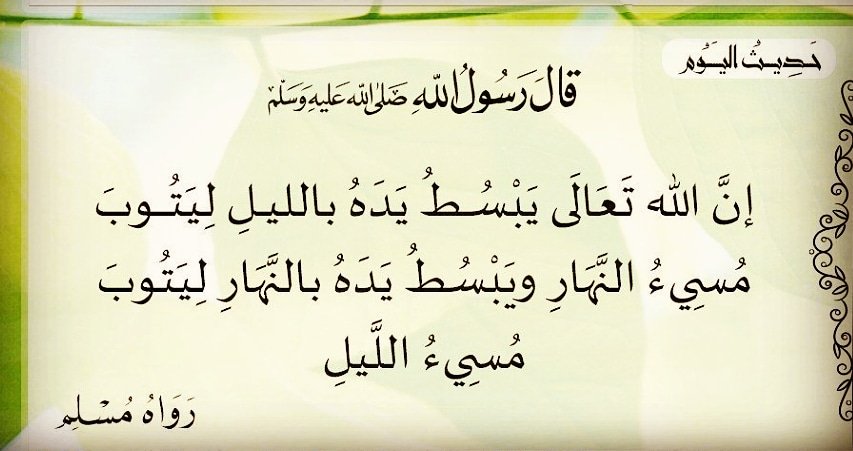 حَدِيثُ اليَوْم
قَالَ رَسُولُ اللّٰهِ صَلَى اللّٰه عَلَيهِ وَسَلَّمَ
إنَّ اللّٰه تَعَالَى يَبْسُـطُ يَدَهُ بالليـلِ لِيَتُـوبَ
مُسِيءُ النَّهَارِ ويَبْسُطُ يَدَهُ بالنَّهَارِ لِيَتُوبَ
مُسِيءُ اللَّيلِ
رَوَاهُ مُسْلِم